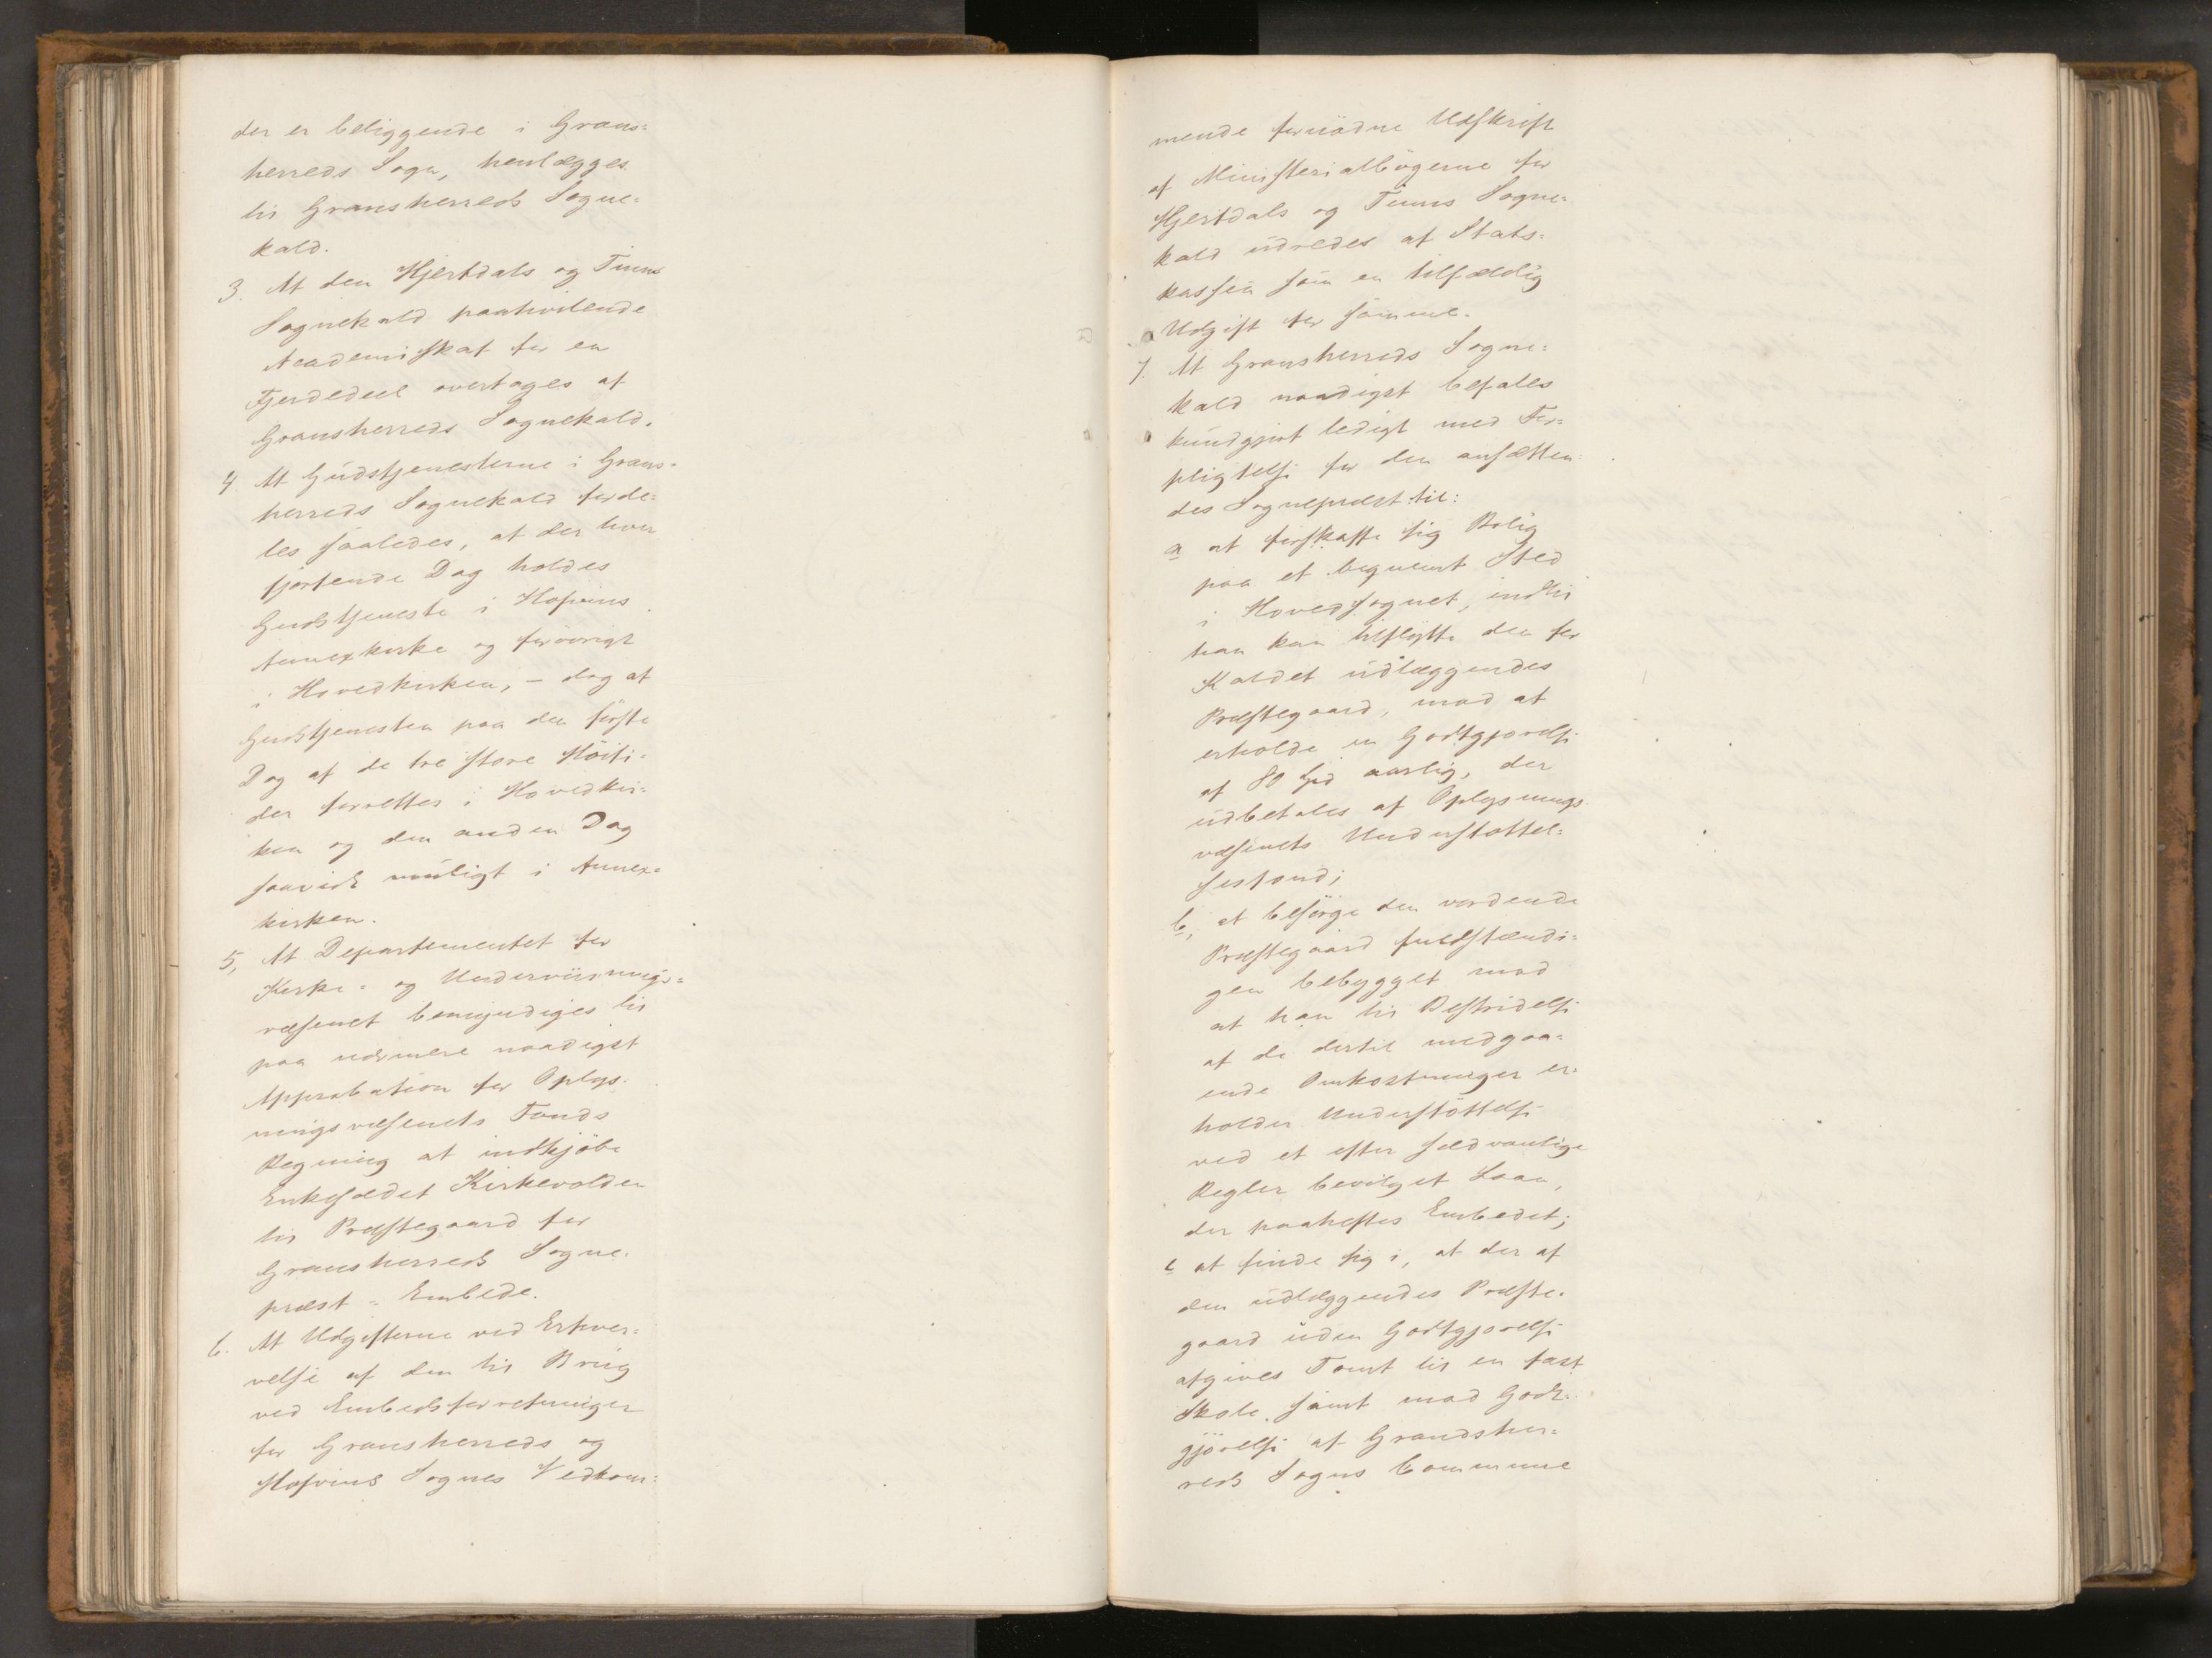 der er beliggende i Grans=
herreds Sogn, henlægges
til Gransherreds Sogne=
kald.
3. At den Hjertdals og Tinns
Sognekald paahvilende
Academiskat for en
Fjerdedeel overtages af
Gransherreds Sognekald.
4 At Gudstjenesterne i Grans=
herreds Sognekald forde=
les saaledes, at der hver
fjortende Dag holdes
Gudstjeneste i Hofvins
Annexkirke og forövrigt
i Hovedkirken, – dog at
Gudstjenesten paa den förste
Dag af de tre store Höiti=
der forrettes i Hovedkir=
ken og den anden Dag
saavidt muligt i Annex=
kirken.
5, At Departementet for
Kirke= og Underviisnings=
væsenet bemyndiges til
paa nærmere naadigst
Approbation for Oplys=
ningsvæsenets Fonds
Regning at indkjöbe
Enkesædet Kirkevolden
til Præstegaard for
Gransherreds Sogne=
præst = Embede.
6. At Udgifterne ved Erhver=
velse af den til Brug
ved Embedsforretninger
for Gransherreds og
Hofvins Sognes Vedkom=
mende fornödne Udskrift
af Ministerialbögerne for
Hjertdals og Tinns Sogne=
kald udredes af Stats=
kassen som en tilfældig
Udgift for samme.
7. At Gransherreds Sogne=
kald naadigst befales
kundgjort ledigt med For=
pligtelse for den ansætten=
des Sognepræst til:
a at forskaffe sig Bolig
paa et beqvemt Sted
i Hovedsognet, indtil
han kan tilflytte den for
Kaldet udlæggendes
Præstegaard, mod at
erholde en Godtgjorelse
af 80 Spd aarlig, der
udbetales af Oplysnings
væsenets Understottel=
sesfond;
b, at besörge den vordende
Præstegaard fuldstændi=
gen bebygget mod
at han til Bestridelse
af de dertil medgaa=
ende Omkostninger er=
holder Understöttelse
ved et efter sædvanlige
Regler bevilget Laan,
der paaheftes Embedet;
c at finde sig i, at der af
den udlæggendes Præste=
gaard uden Godtgjorelse
afgives Tomt til en fast
Skole, samt mod Godt=
gjörelse af Grandsher=
reds Sogns Commune